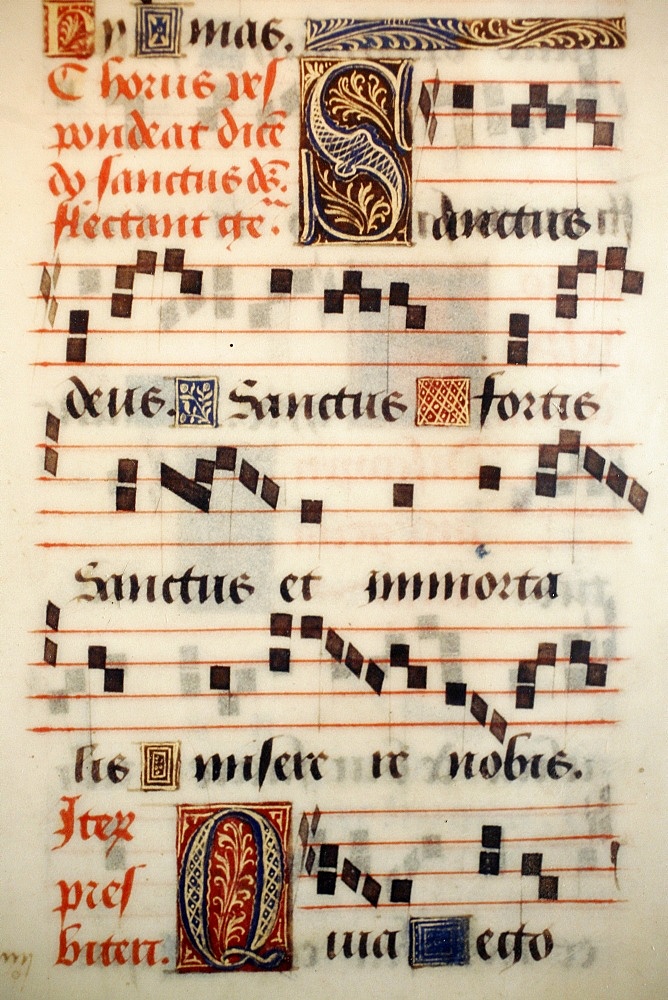 Ey mas.
Chorus res
pondeat dicē
do sanctus ds̄.
flectant ge¨.
Sanctus
deus. Sanctus fortis
Sanctus et immorta
lis misere re nobis.
Iter
pres
biteri.
Quia ecto